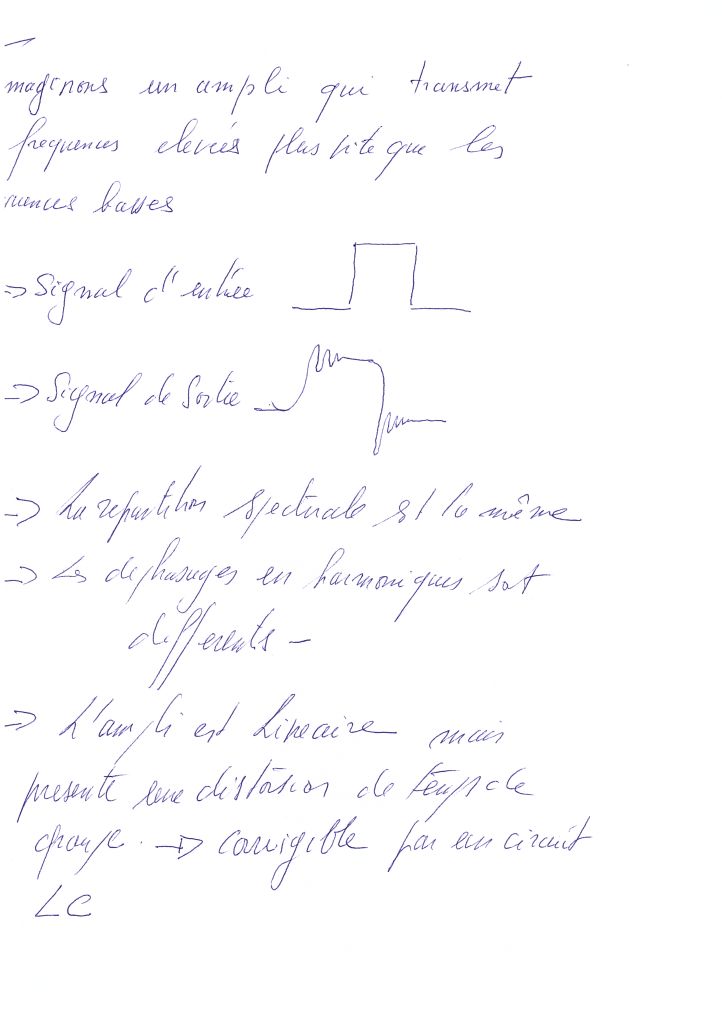 maginons un ampli qui transmet
frequences elevées plus vite que les
uences basses
=> Signal d'entrée
=> Signal de Sortie
=> La repartition spectrale est la même
=> Les dephasages en harmoniques sont
differents -
=> L'ampli est Lineaire mais
presente une distorsion de temps de
groupe. => corrigible par un circuit
LC